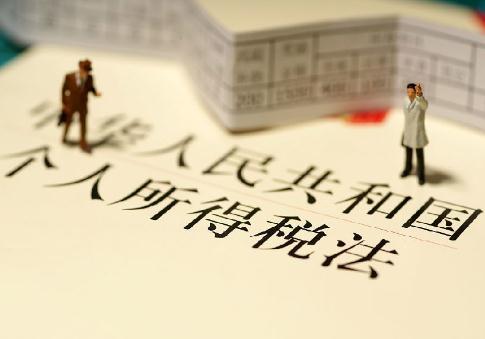 中华人民共和国
个人所得税法